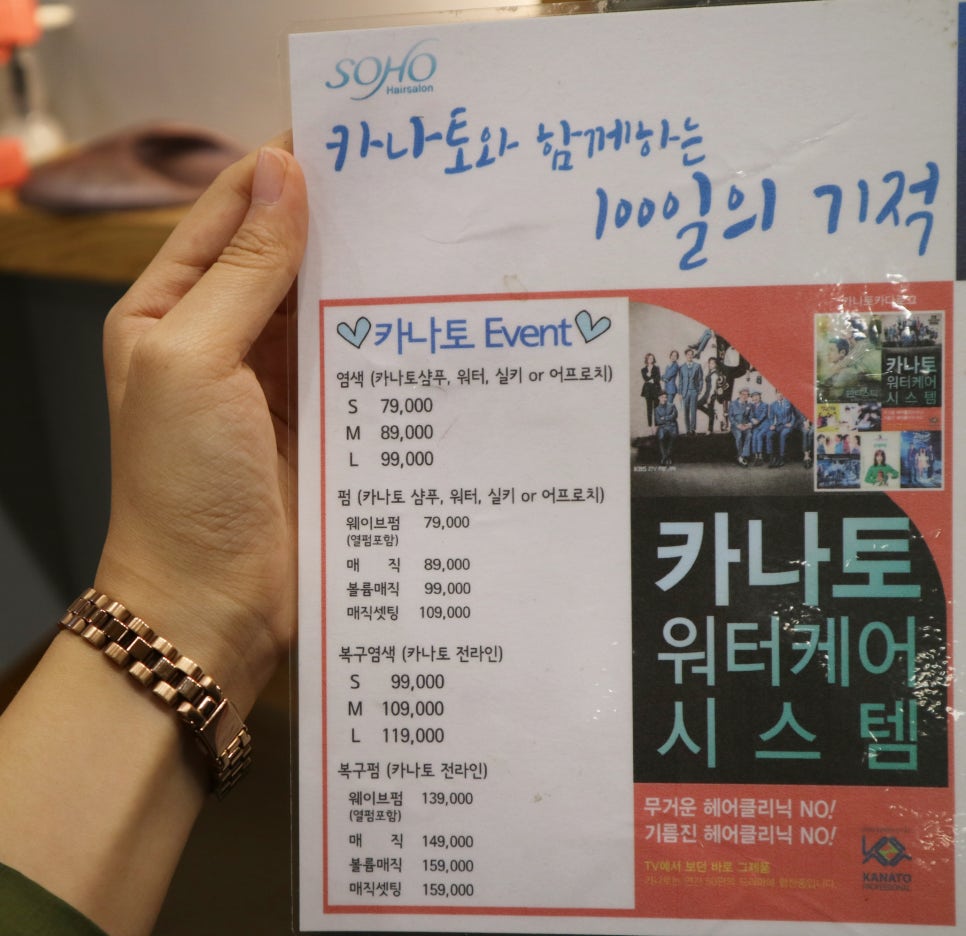 SOHO
Hairsalon
카나토와 함께하는
100일의 기적
카나토 Event
염색 (카나토샴푸, 워터, 실키 or 어프로치)
S 79,000
M 89,000
L 99,000
펌 (카나토 샴푸, 워터, 실키 or 어프로치)
웨이브펌 79,000
(열펌포함)
매 직 89,000
볼륨매직 99,000
매직셋팅 109,000
복구염색 (카나토 전라인)
S 99,000
M 109,000
L 119,000
복구펌 (카나토 전라인)
웨이브펌 139,000
(열펌포함)
매 직 149,000
볼륨매직 159,000
매직셋팅 159,000
카나토
워터케어
시스템
KBS
카나토
워터케어
시 스 템
무거운 헤어클리닉 NO!
기름진 헤어클리닉 NO!
TV에서 보던 바로 그제품
KANATO
PROFESSIONAL